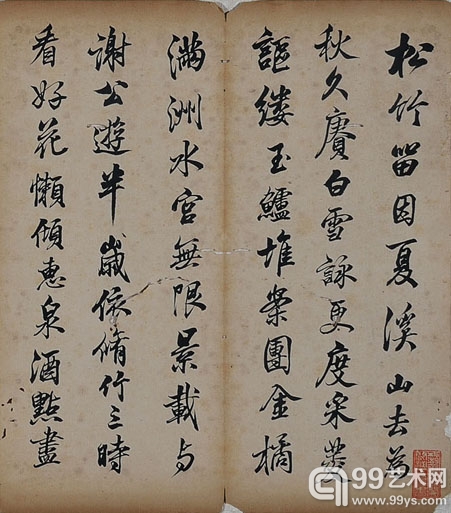 松竹留因夏溪山去為
秋久賡白雪詠更度采菱
謳縷玉鱸堆案團金橘
滿洲水宮無限景載与
謝公遊半歲依脩竹三時
看好花懶傾惠泉酒點盡
99艺术网
www.99ys.com